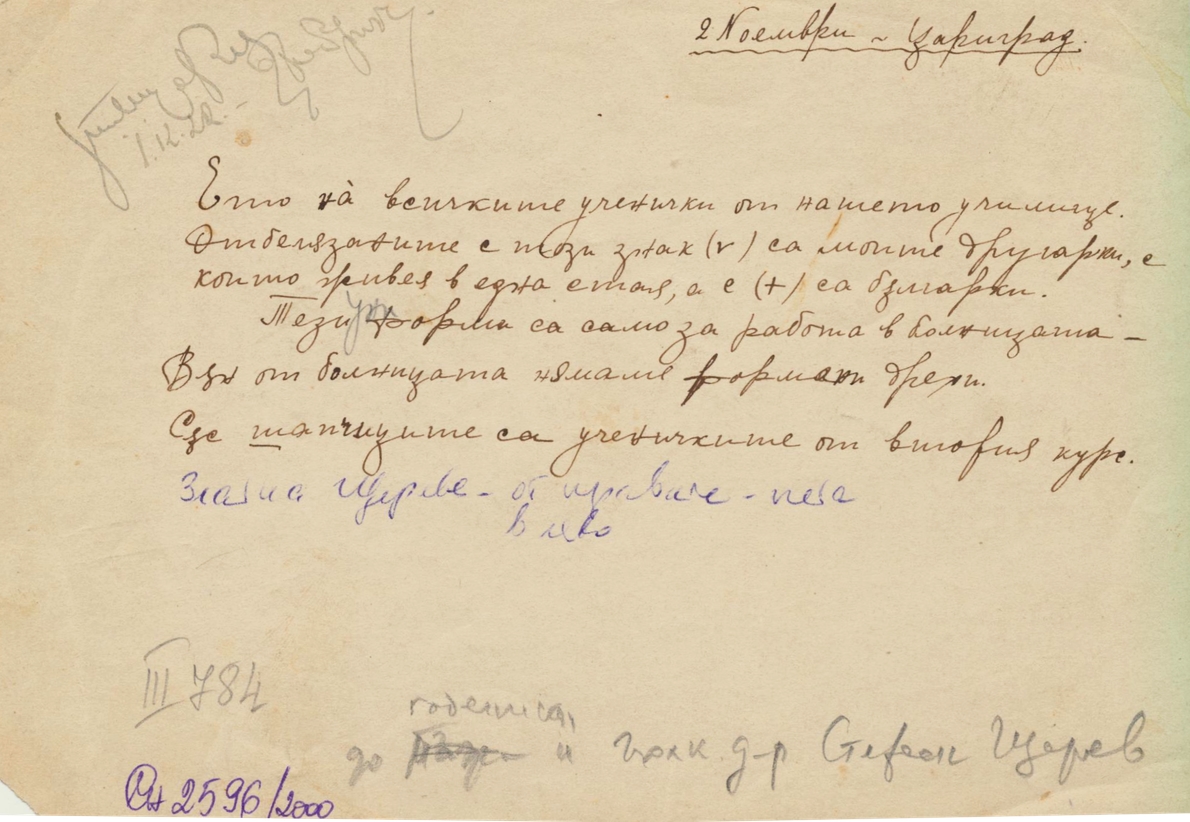 2 Ноември - Цариград.
1.12.22.
Ето ти всичките ученички от нашето училище.
Отбелязаните с този знак (v) са моите другарки, с
които живея в една стая, а с (+) са българки.
Тези форми са само за работа в болницата -
Вън от болницата нямаме формени дрехи.
Със шапчиците са ученичките от втория курс.
Златка Щерева - от правите - пета
в ляво
III 784
годеника
до й полк. д-р Стефан Щерев
Ан 2596/2000